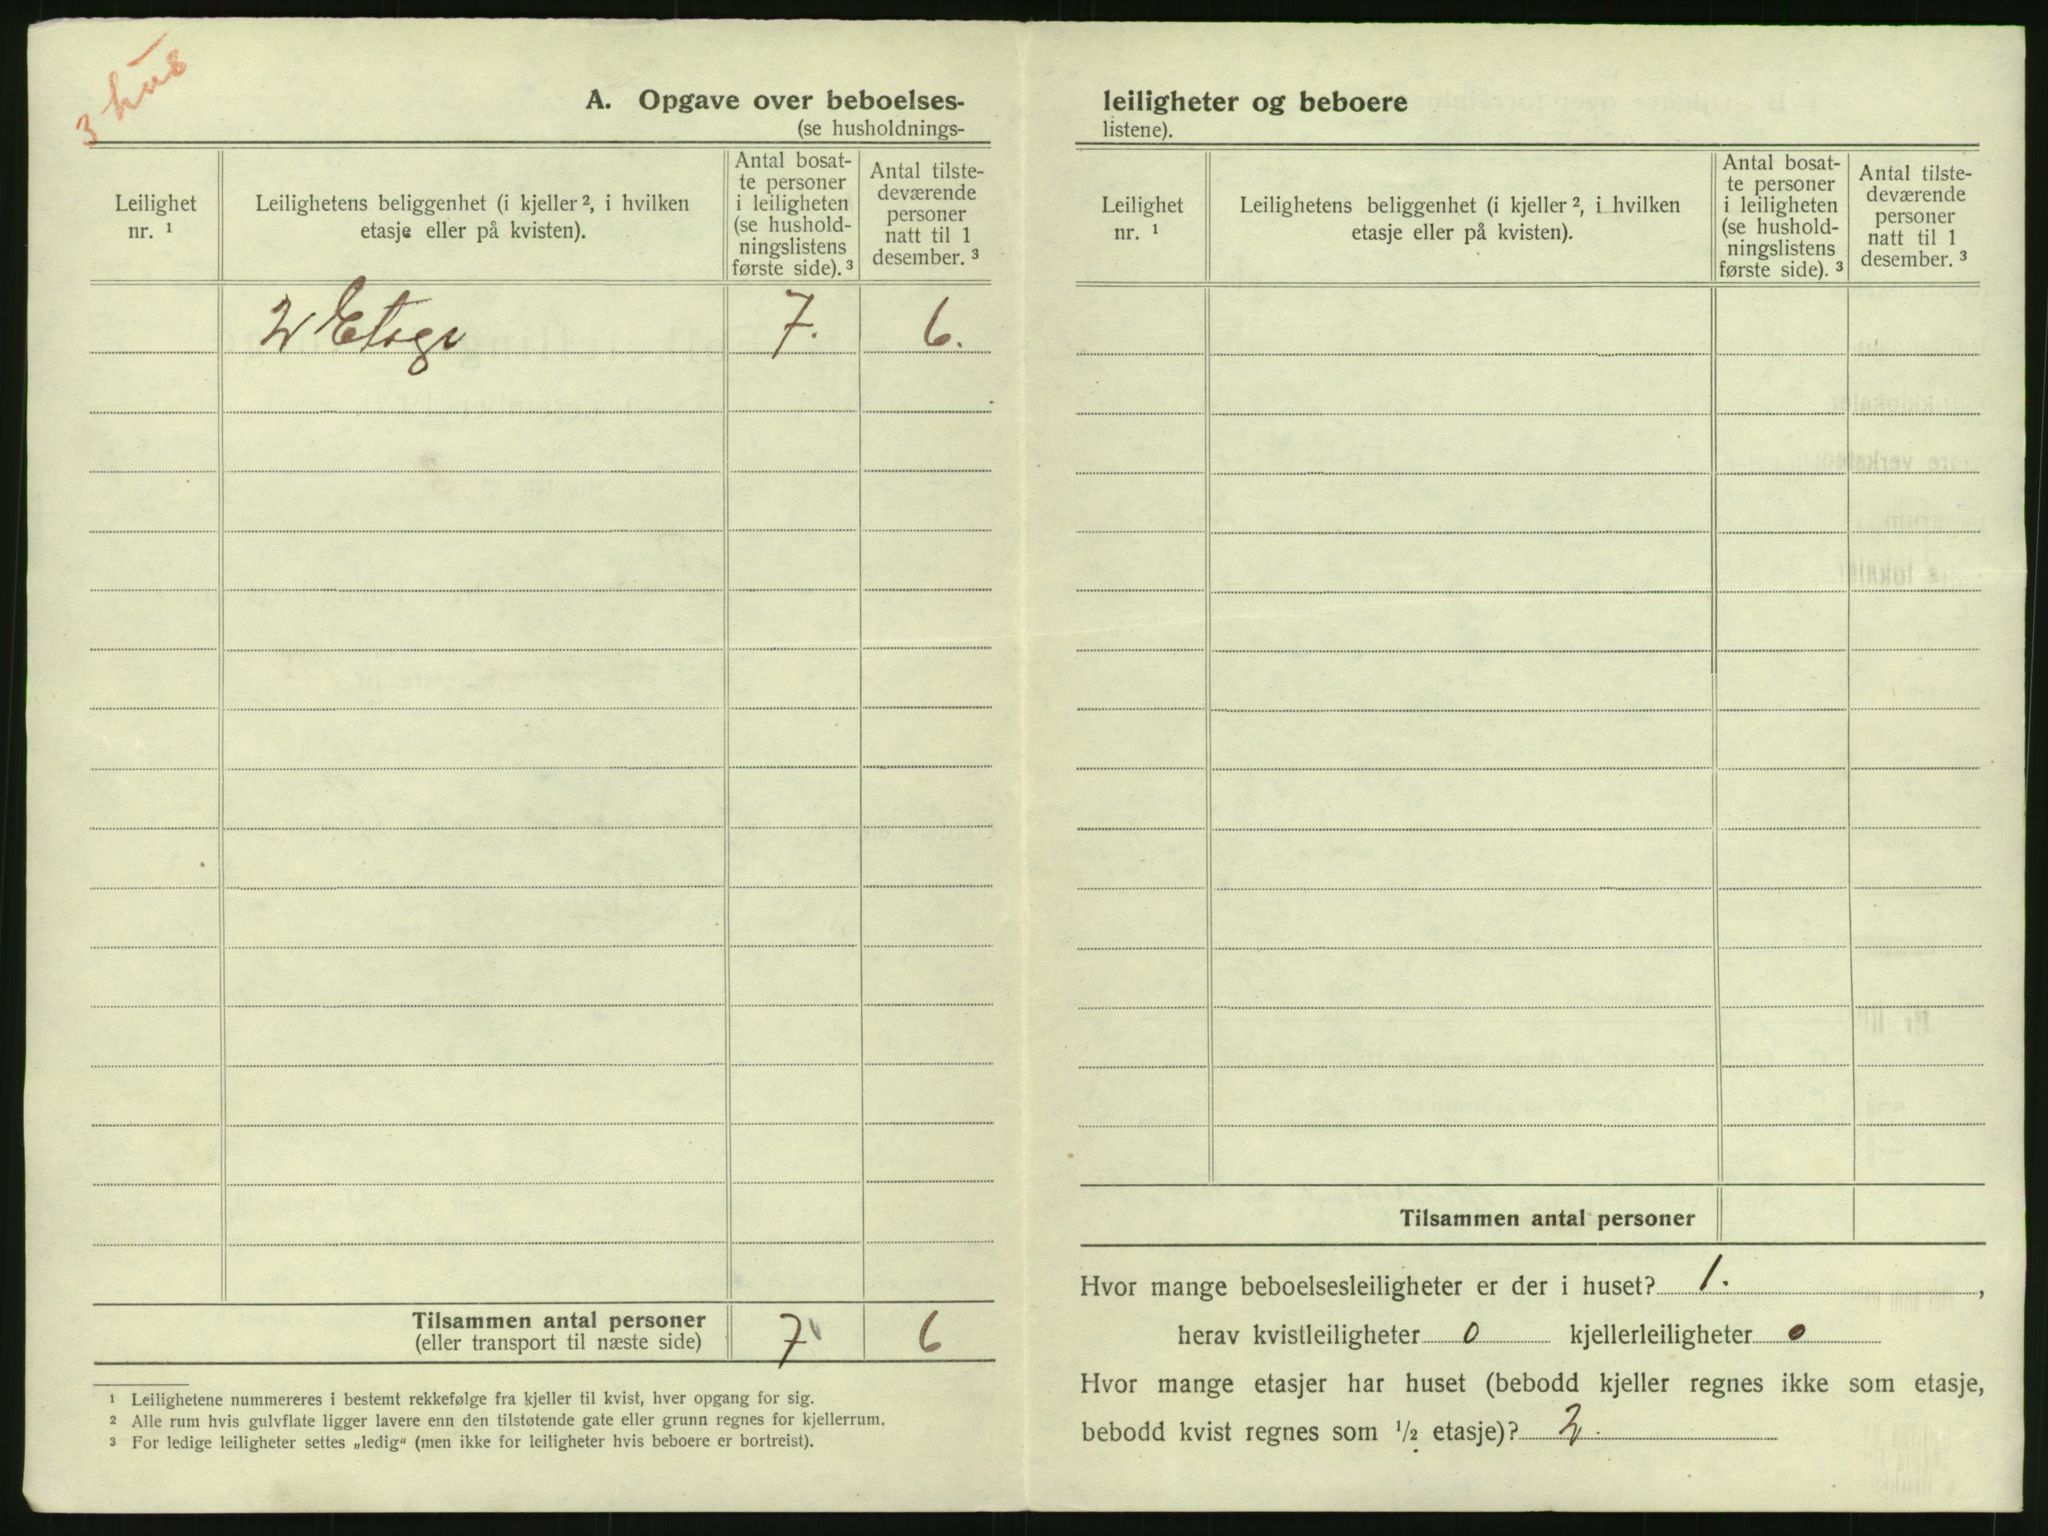 3 hus
A. Opgave over beboelses-
(se husholdnings-
Leilighet
nr. ¹
Leilighetens beliggenhet (i kjeller ², i hvilken
etasje eller på kvisten).
Antal bosat-
te personer
i leiligheten
(se hushold-
ningslistens
første side). ³
Antal tilste-
deværende
personer
natt til 1
desember. ³
2 Etage
7.
6.
Tilsammen antal personer
(eller transport til næste side)
7
6
¹ Leilighetene nummereres i bestemt rekkefølge fra kjeller til kvist, hver opgang for sig.
² Alle rum hvis gulvflate ligger lavere enn den tilstøtende gate eller grunn regnes for kjellerrum.
³ For ledige leiligheter settes „ledig“ (men ikke for leiligheter hvis beboere er bortreist).
leiligheter og beboere
listene).
Leilighet
nr. ¹
Leilighetens beliggenhet (i kjeller ², i hvilken
etasje eller på kvisten).
Antal bosat-
te personer
i leiligheten
(se hushold-
ningslistens
første side). ³
Antal tilste-
deværende
personer
natt til 1
desember. ³
Tilsammen antal personer
Hvor mange beboelsesleiligheter er der i huset? 1.,
herav kvistleiligheter 0 kjellerleiligheter 0
Hvor mange etasjer har huset (bebodd kjeller regnes ikke som etasje,
bebodd kvist regnes som ½ etasje)? 2.